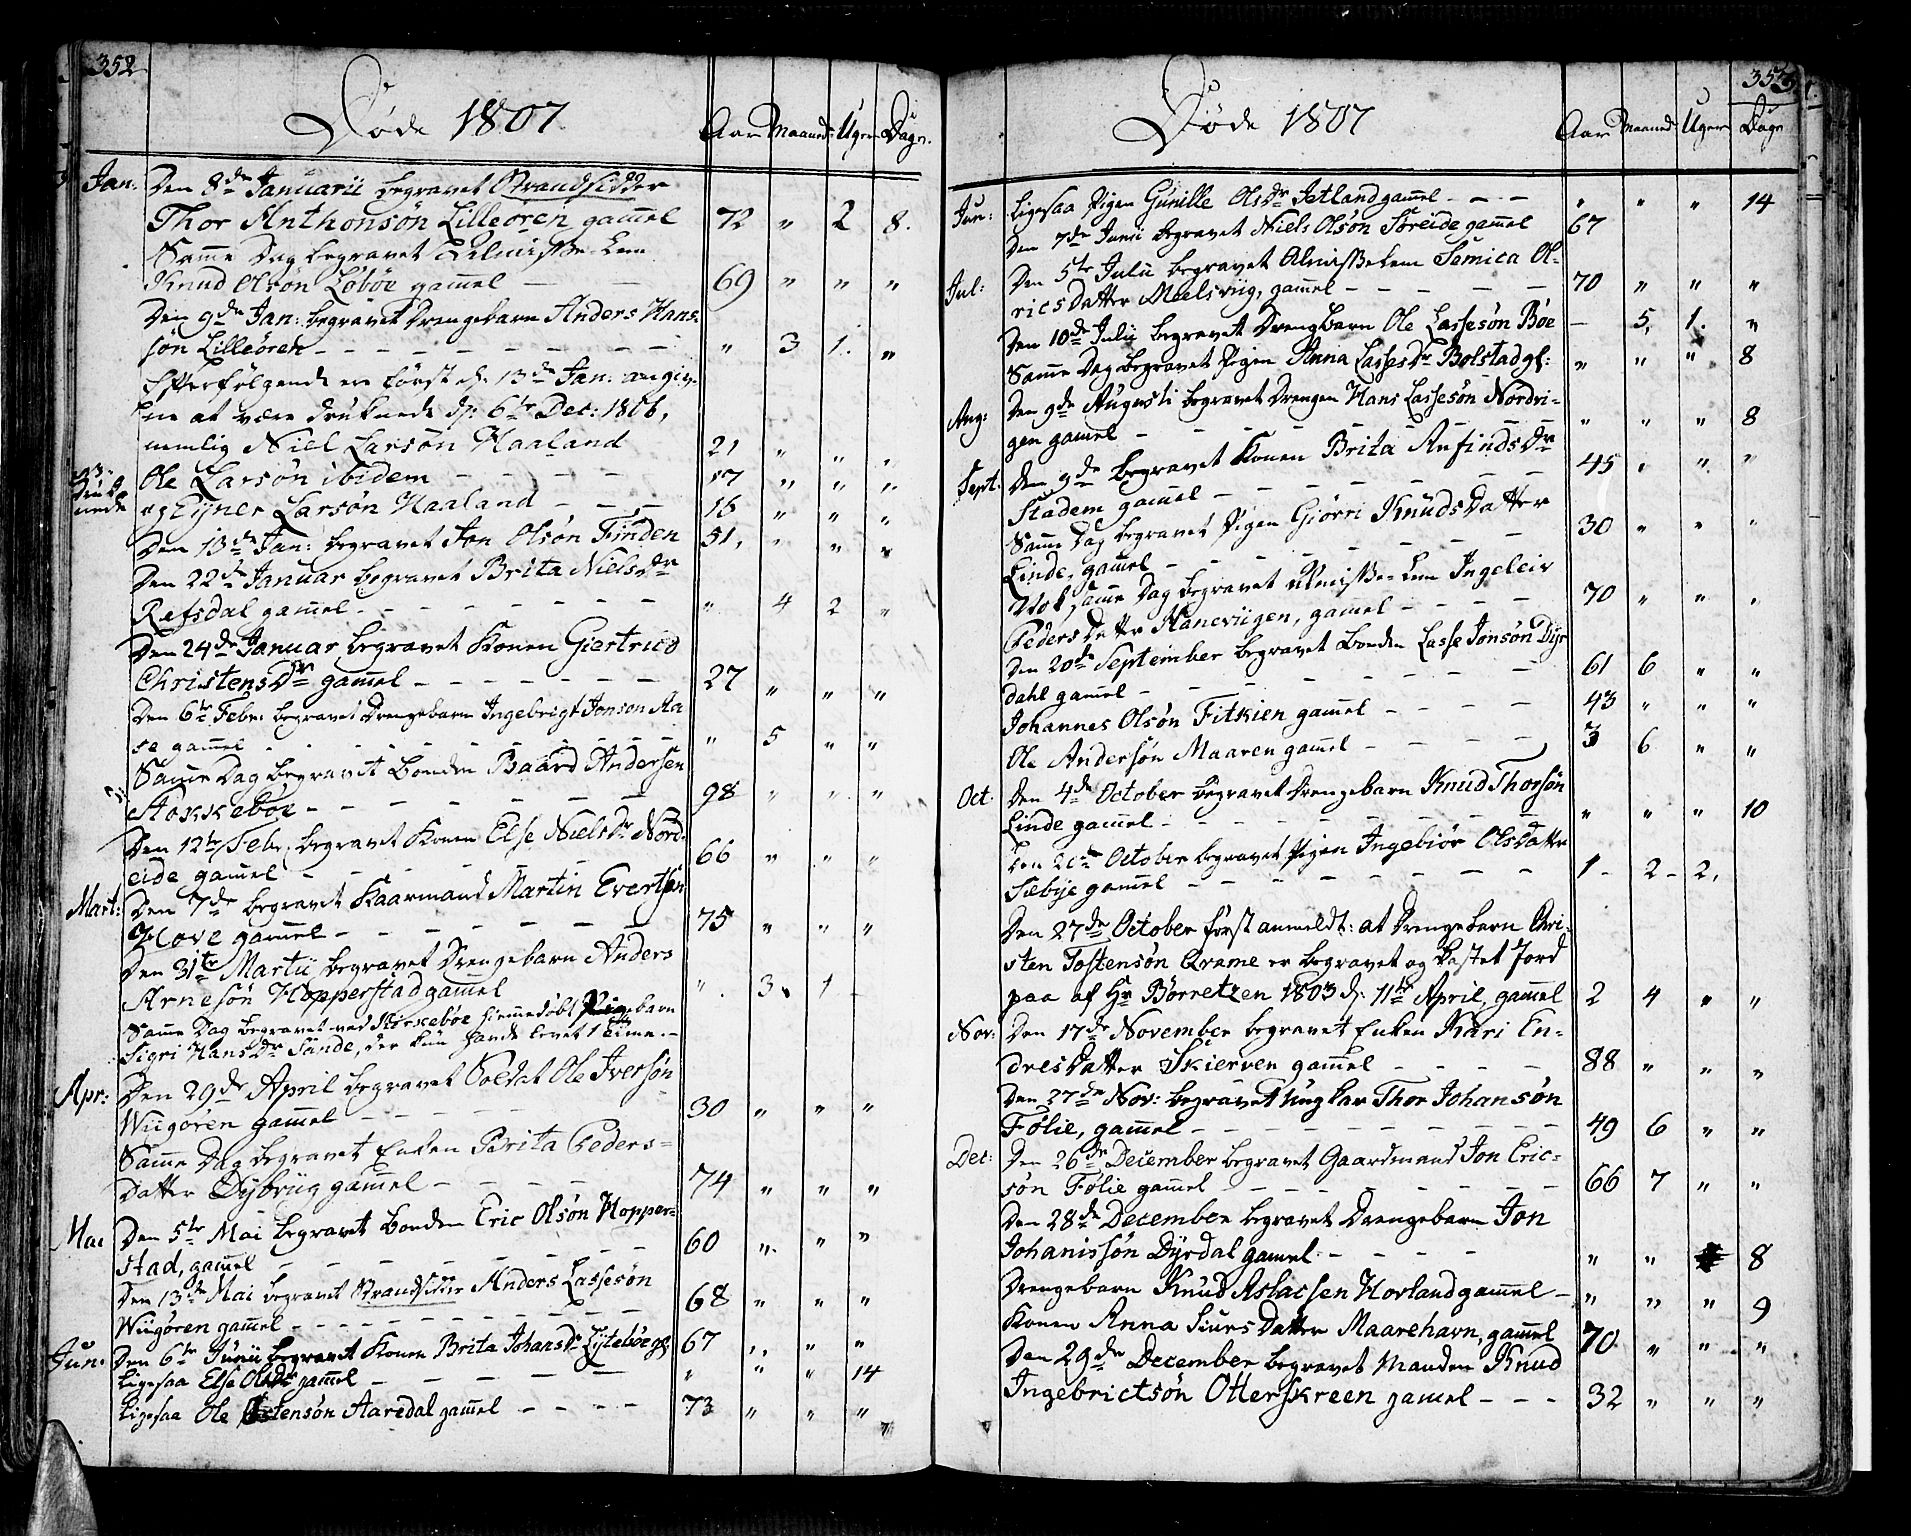 352
Døde 1807
Aar Maaned: Uger Dage.
Jan: Den 8de Januarii begravet Strandsidder
Thor Anthonsøn Lilleøren gamel 72 " 2 8.
Samme Dag begravet Lem
Knud Olsøn Løbøe gamel — — 69 " " "
Den 9de Jan: begravet Drengebarn Anders Hans-
søn Lilleøren - - - - - - - " 3 1. "
Efterfølgende ere først d. 13de Jan: angiv-
ne at være druknede d: 6te Dec: 1806,
nemlig Niel Larsøn Haaland 21 " " "
3 Drukнede
Ole Larsøn ibidem - - - - 17 " " "
og Ejner Larsøn Haaland - - - 16 " " "
Den 13de Jan: begravet Jon Olsøn Finden 51, " " "
Den 22de Januar begravet Brita NielsDr
Refsdal gamel - - - - - - " 4 2 "
Den 24de Januar begravet Konen Giertrud
ChristensDr gamel - - - - - - 27 " " "
Den 6te Febr: begravet Drengebarn Ingebrigt Jonson Aa
se gamel - - - - - - - " 5 " "
Samme Dag begravet Bonden Baard Andersen
Stokkebøe - - - - - - 98 " " "
Den 12te Febr: begravet Konen Else NielsDr Nord-
eide gamel - - - 66 " " "
Mart: Den 7de begravet Kaarmand Martin Evertsen
Hove gamel - - - - - - 75 " " "
Den 31te Martii begravet Drengebarn Anders
Arnesøn Hopperstad gamel ". 3. 1 -
Samme Dag begravet ved hiemmedøbt Pigebarn
Sigri HansDr Sande, der kun havde levet 1 Time.-
Apr: Den 29de April begravet Soldat Ole Iversøn
Wiigøren gamel - - - - 30 " " "
Samme Dag begravet Enken Brita Peders-
datter Dybviig gamel - - - - 74 " " "
Mai Den 5te Mai begravet Bonden Eric Olsøn Hopper-
stad, gamel - - - - - - 60 " " "
Den 13de Mai begravet Strandsidder Anders Lassesøn
Wiigøren gamel - - - - - - - 68 " " "
Jun: Den 6te Junii begravet Konen Brita JohansDr Lytebøe gl: 67 " " "
Ligesaa Else gamel - - - - - " " " 14
Ligesaa Ole Aaredal gamel - - - - 73 " " "
353
Døde 1807
Aar Maaned: Uger Dage
Jun: Ligesaa Pigen Gunille OlsDr Jetland gamel - - - " " " 14
Den 7de Junii begravet Niels Olsøn Søreide gamel 67
Jul: Den 5te Julii begravet Almisse Lem Semica Ol-
ricsDatter Meelsviig, gamel - - - - - 70 " " "
Den 10de Julii begravet Drengbarn Ole Lassesøn Bøe - 5, 1. "
Samme Dag begravet Pigen Anna LassesDr Bolstad gl: " " " 8
Aug: Den 9de Augusti begravet Drengen Hans Lassesøn Nordri-
gen gamel - - - - - - - " " " 8
Sept: Den 9de begravet Konen Brita AufindsDr
Stadem gamel - - - - - - 45 " " "
Samme Dag begravet Pigen Giørri KnudsDatter
Linde, gamel - - - - - - - 30 " " "
Samme Dag begravet Almisse-Lem Ingeleiv
PedersDatter Haneviigen, gamel - - - - 70 " " "
Den 20de September begravet Bonden Lasse Jonsøn Dyr
dahl gamel - - - - - - - 61 6 " "
Johannes Olsøn Fitkien gamel - - - - 43 " " "
Ole Andersøn Maaren gamel - - - - 3 6 " "
Oct: Den 4de October begravet Drengebarn Knud Thorsøn
Linde gamel - - - - - - - " " " 10
Den October begravet Pigen Ingebiør OlsDatter
Sæbye gamel - - - - - - - 1 - 2 - 2,
Den 27de October først anmeldt: at Drengebarn Chri-
sten Tostensøn Qvame er begravet og kastet Jord
paa af Hr Børretzen 1803 d. 11te April, gamel 2 4 " "
Nov: Den 17de November begravet Enken Kari En-
dresDatter Skierven gamel - - - - 88 " " "
Den 27de Nov: begravet Ungkar Thor Johansøn
Følie, gamel - - - - - - - - 49 6 " "
Dec: Den 26de December begravet Gaardmand Jon Eric-
søn Følie gamel - - - - - - - 66 7 " "
Den 28de December begravet Drengebarn Jon
Johanissøn Dyrdal gamel - - - - " " 8
Drengebarn Knud Aslacsen Hovland gamel - " " " 9
Konen Anna SiursDatter Maarehavn, gamel 70 " " "
Den 29de December begravet Manden Knud
Ingebrictsøn Otterskreen gamel - - - 32 " " "